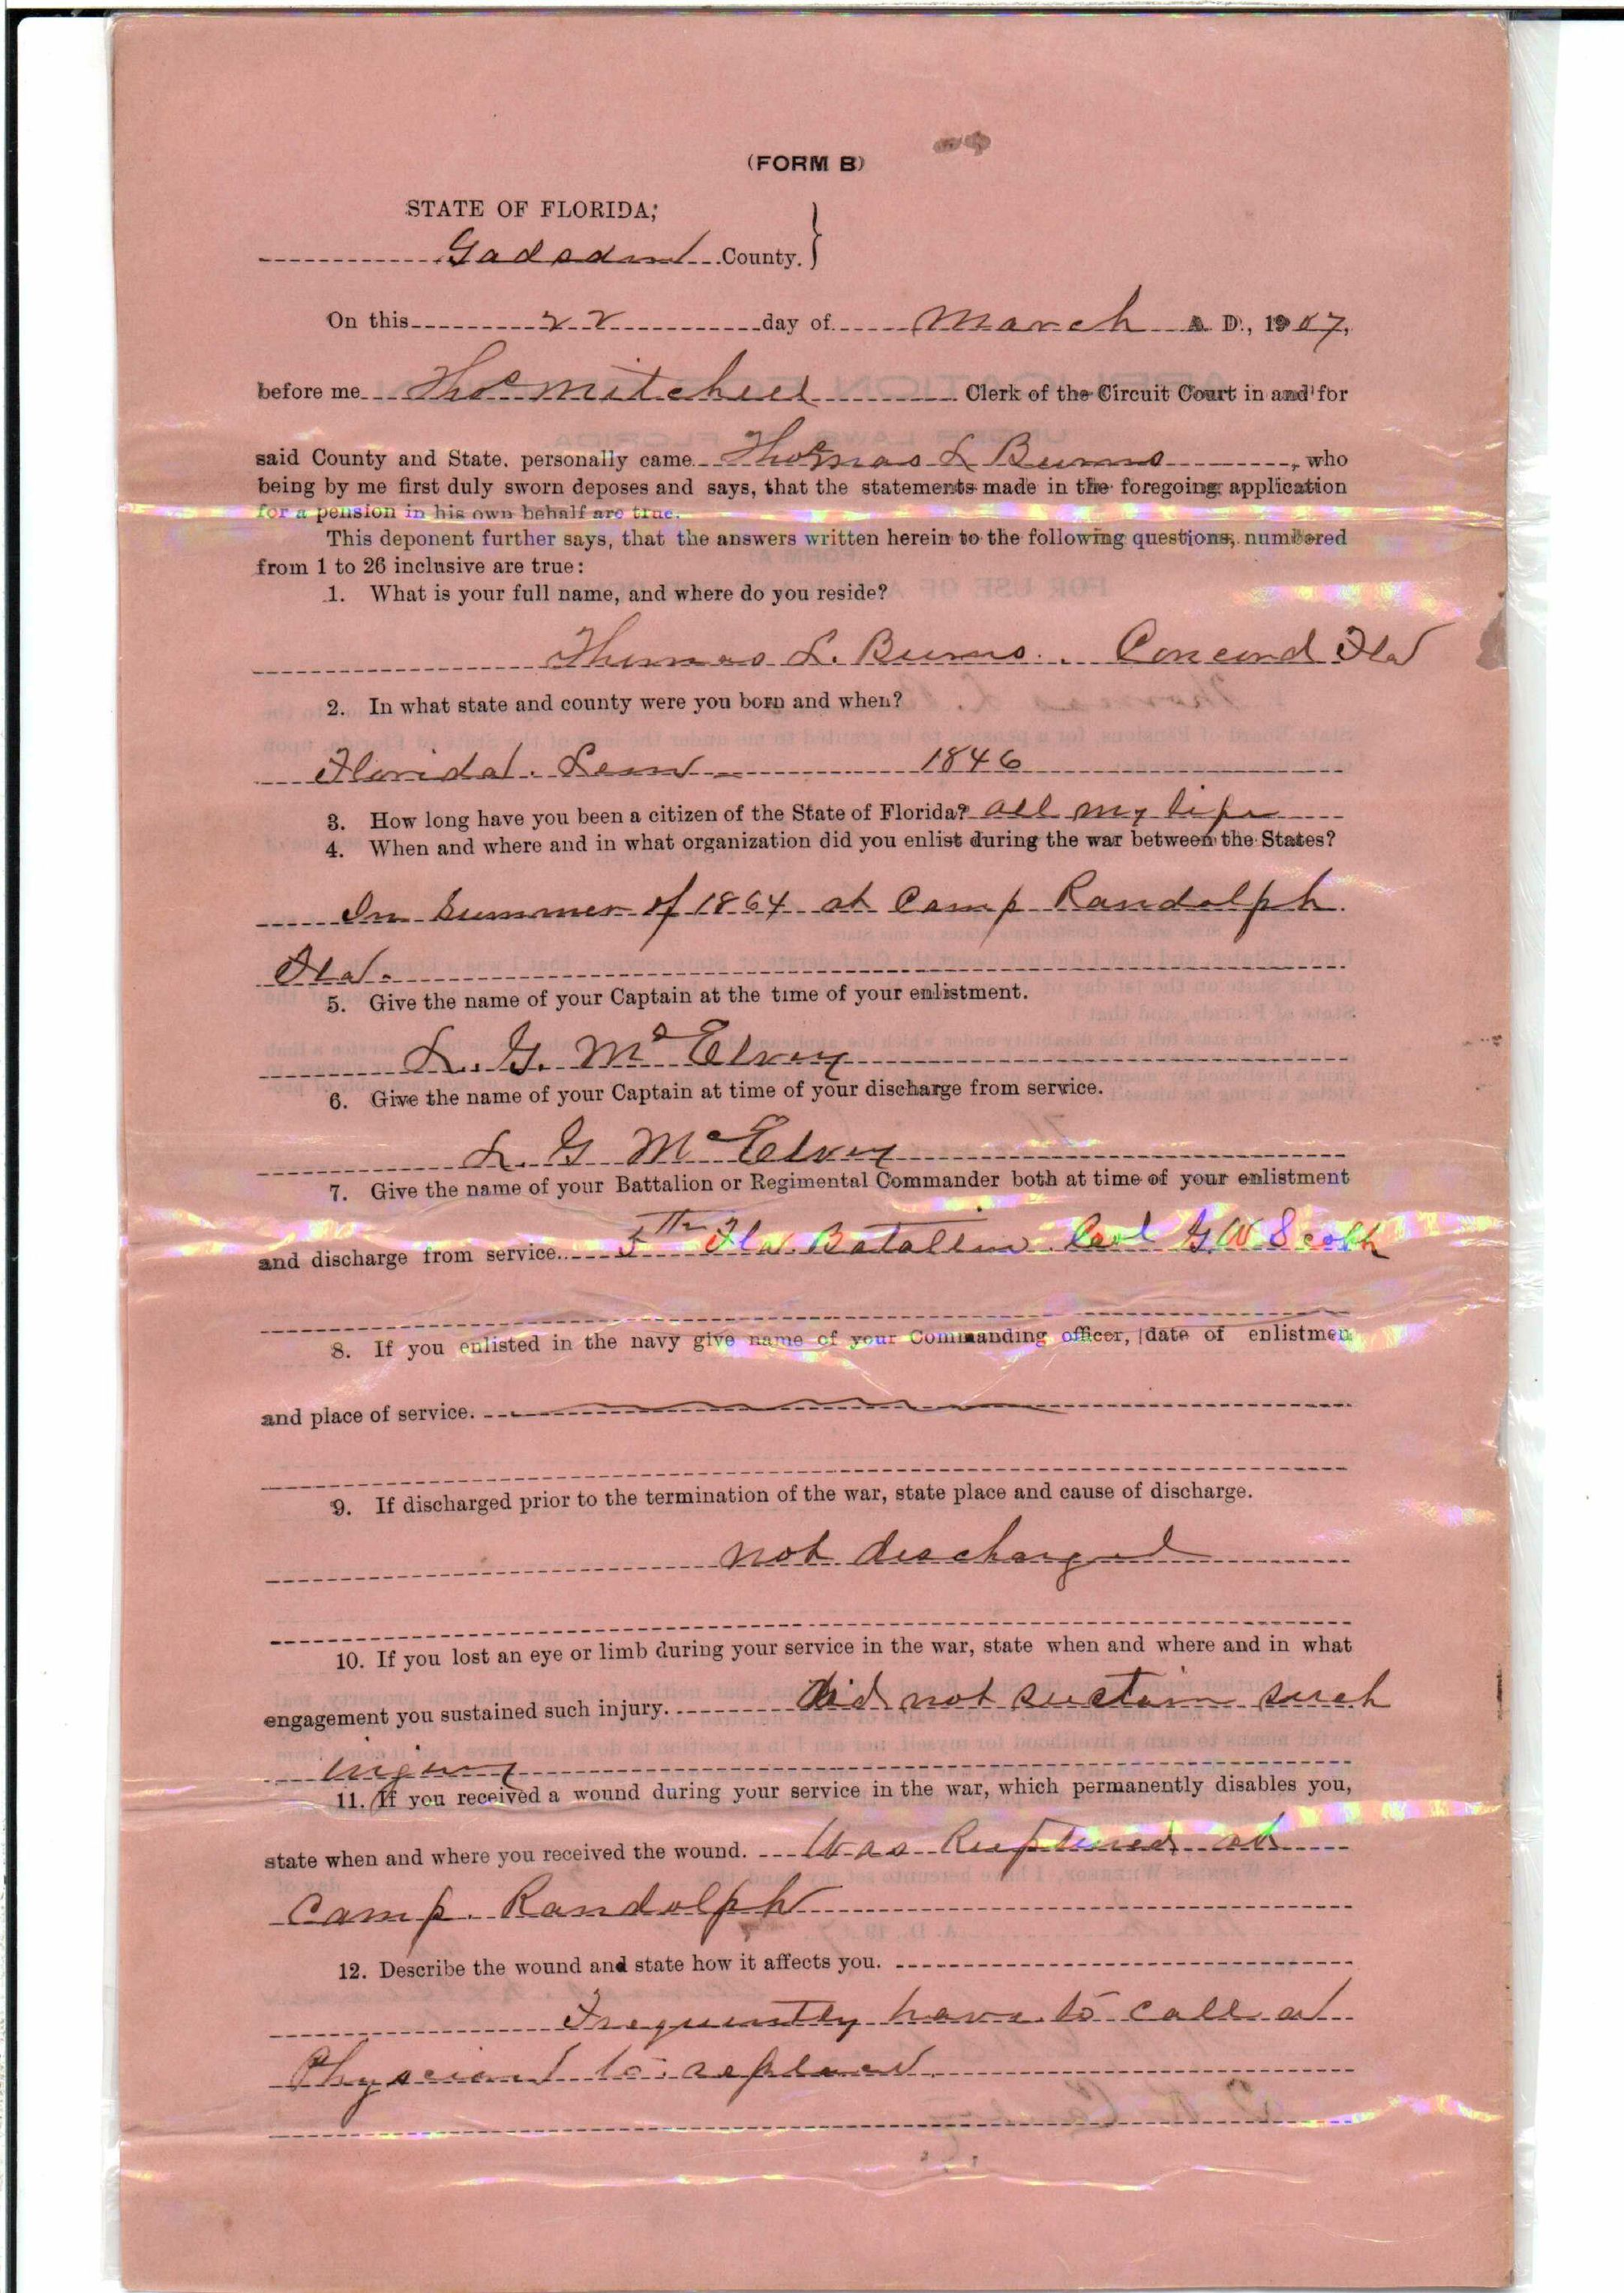 (FORM B)
STATE OF FLORIDA;
Gadsden County.
On this 22 day of March A. D., 1907,
before me Thos Mitchell Clerk of the Circuit Court in and for
said County and State. personally came Thomas L Burns, who
being by me first duly sworn deposes and says, that the statements made in the foregoing application
for a pension in his own behalf are true.
This deponent further says, that the answers written herein to the following questions, numbered
from 1 to 26 inclusive are true:
1. What is your full name, and where do you reside?
Thomas L. Burns. . Concord Fla
2. In what state and county were you born and when?
Florida. Leon 1846
3. How long have you been a citizen of the State of Florida? all my life
4. When and where and in what organization did you enlist during the war between the States?
In Summer of 1864 at Camp Randolph
Fla.
5. Give the name of your Captain at the time of your enlistment.
L. G. McElvey
6. Give the name of your Captain at time of your discharge from service.
L. G McElvey
7. Give the name of your Battalion or Regimental Commander both at time of your enlistment
and discharge from service. 5th Fla. Batallin Col G W Scott
8. If you enlisted in the navy give name of your Commanding officer, date of enlistmen
and place of service.
9. If discharged prior to the termination of the war, state place and cause of discharge.
not discharged
10. If you lost an eye or limb during your service in the war, state when and where and in what
engagement you sustained such injury. did not sustain such
injury
11. If you received a wound during your service in the war, which permanently disables you,
state when and where you received the wound. Was Ruptured at
Camp. Randolph
12. Describe the wound and state how it affects you.
Frequently have to call a
Physician to replace